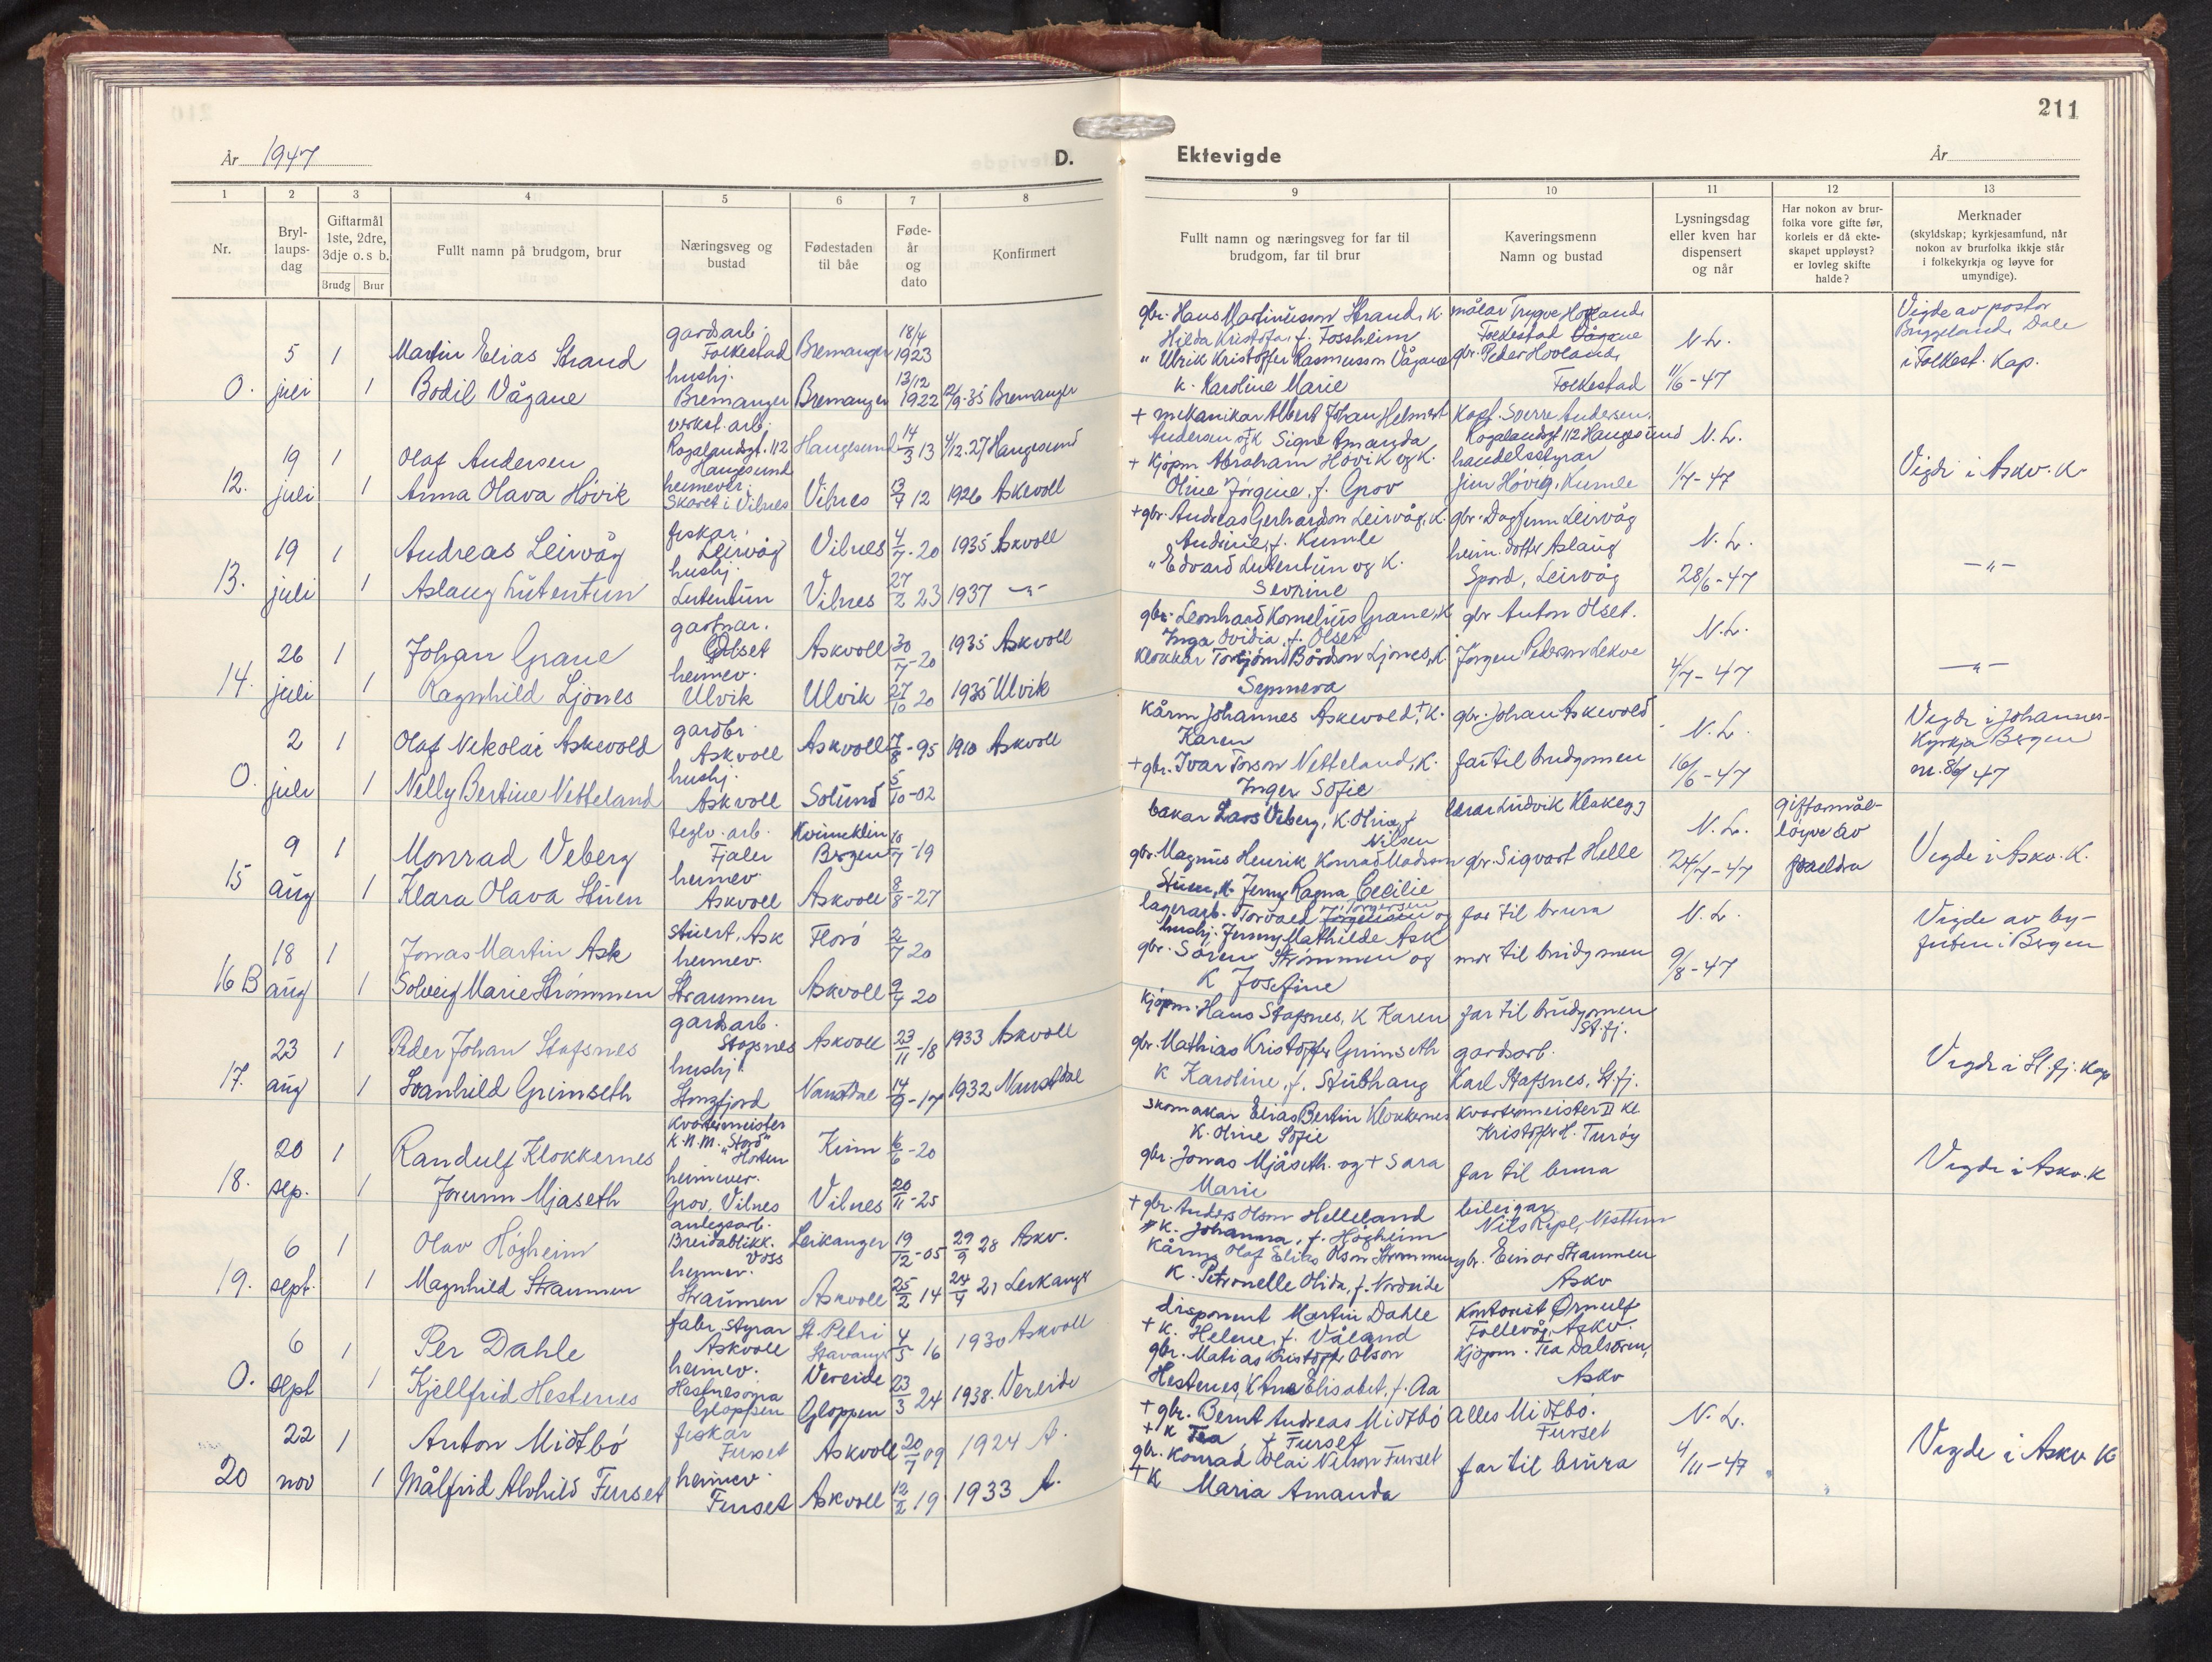 År 1947 D.
1 2 3 4 5 6 7 8
Nr.
Bryl-
laups-
dag
Giftarmål
1ste, 2dre,
3dje o. s b.
Brudg Brur
Fullt namn på brudgom, brur
Næringsveg og
bustad
Fødestaden
til båe
Føde-
år
og
dato
Konfirmert
gardsarb. 18/4
5 1 Martin Elias Strand Folkestad Bremanger 1923
hushj. 13/12
O. juli 1 Bodil Vågane Bremanger Bremanger 1922 12/9-35 Bremanger
verkst. arb.
19 1 Olaf Andersen Rogalandsgt. 112 Haugesund Haugesund 14/3 13 4/12.27 Haugesund
heimever.
12. juli 1 Anna Olava Høvik Skaret i Vilnes Vilnes 13/7 12 1926 Askvoll
fiskar
19 1 Andreas Leirvåg Leirvåg Vilnes 4/7-20 1935 Askvoll
hushj.
13. juli 1 Aslaug Lutentun Lutentun Vilnes 27/2 23 1937 -"-
gartnar.
26 1 Johan Grane Olset Askvoll 30/7-20 1935 Askvoll
heimev.
14. juli 1 Ragnhild Ljones Ulvik Ulvik 27/10 20 1935 Ulvik
gardbr.
2 1 Olaf Nikolai Askevold Askvoll Askvoll 7/8-95 1910 Askvoll
hushj.
O. juli 1 Nelly Bertine Netteland Askvoll Solund 5/10-02
teglv. arb. Kvinneklin
9 1 Monrad Veberg Fjaler Bergen 10/7-19
heimev.
15 aug 1 Klara Olava Stuen Askvoll Askvoll 8/8-27
18 1 Jonas Martin Ask stuert, Ask Florø 2/7 20
heimev.
16 B aug 1 Solveig Marie Strømmen Straumen Askvoll 9/4 20
gardsarb.
23 1 Peder Johan Stafsnes Stafsnes Askvoll 23/11-18 1933 Askvoll
hushj.
17. aug 1 Svanhild Grimseth Stongfjord Naustdal 14/9-17 1932 Naustdal
kvartermeister
20 1 Randulf Klokkernes K.N.M. "Stord" Horten Kinn 6/6-20
heimever.
18. sep. 1 Jorunn Mjåseth Grov, Vilnes Vilnes 20/11-25
anlegsarb.
6 1 Olav Høgheim Breidablikk. Voss Leikanger 19/12-05 29/9 28 Askv.
heimev.
19. sept. 1 Magnhild Straumen Straumen Askvoll 25/2 14 24/4 21 Leikanger
fabr. styrar St. Petri
6 1 Per Dahle Askvoll Stavanger 4/5 16 1930 Askvoll
heimev. Vereide
O. sept 1 Kjellfrid Hestenes Hestnesøyra Gloppen Gloppen 23/3 24 1938. Vereide
fiskar
22 1 Anton Midtbø Furset Askvoll 20/7 09 1924 A.
heimev.
20 nov 1 Målfrid Alvhild Furset Furset Askvoll 12/2 19 1933 A.
211
Ektevigde År
9 10 11 12 13
Fullt namn og næringsveg for far til
brudgom, far til brur
Kaveringsmenn
Namn og bustad
Lysningsdag
eller kven har
dispensert
og når
Har nokon av brur-
folka vore gifte før,
korleis er då ekte-
skapet uppløyst?
er lovleg skifte
halde?
Merknader
(skyldskap; kyrkjesamfund, når
nokon av brurfolka ikkje står
i folkekyrkja og løyve for
umyndige).
gbr. Hans Martinusson Strand, K. målar Trygve Hovland Vigde av pastor
Hilda Kristofa, f. Fossheim Folkestad Vågane N.L. Byggeland, Dale
" Ulrik Kristoffer Rasmusson Vågane gbr. Peder Hovland, i Folkest. Kap.
K. Karoline Marie Folkestad 11/6-47
+ mekanikar Albert Johan Helmert Kapt. Sverre Andersen.
Andersen og K Signe Amanda Rogalandsgt 112 Haugesund N.L.
+ Kjøpm Abraham Høvik og K. handelsstyrar Vigde i Askv. K.
Oline Jørgine, f. Grov Jens Høvig, Kumle 1/7-47
+ gbr. Andreas Gerhardson Leirvåg, K. gbr. Dagfinn Leirvåg
Andrine, f. Kumle heim. dotter Aslaug N.L.
" Edvard Lutentun og K. Spord, Leirvåg 28/6-47 -"-
Sevrine
gbr. Leonhard Kornelius Grane, K gbr Anton Olset.
Inga Ovidia, f. Olset N.L.
Klokkar Torbjørn Bårdson Ljones, K Jørgen Pederson Lekve 4/7-47 -"-
Synneva
Kårm Johannes Askevold, + K. gbr. Johan Askevold N.L. Vigde i Johannes-
Karen Kyrkja Bergen
+ gbr. Ivar Torson Netteland, K. far til brudgomen 16/6-47 nr. 86/47
Inger Sofie
bakar Lars Veberg, K. Olina f. Nilsen lærar Ludvik Klakegg N.L. giftarmål-
løyve av
gbr. Magnus Henrik Konrad Madsson gbr. Sigvart Helle 24/7-47 foreldra Vigde i Askv. K.
Stuen, K. Jenny Ragna Cecilie
lagerarb. Torvald Jørgensen Torgersen og far til brura N.L. Vigde av by-
hushj. Jenny Mathilde Ask futen i Bergen
gbr. Søren Strømmen og mor til brudgomen 9/8-47
K Josefine
Kjøpm. Hans Stafsnes, K Karen far til brudgomen
St.fj.
gbr. Mathias Kristoffer Grimseth gardsarb. Vigde i St.fj. Kap
K Karoline, f. Stubhaug Karl Stafsnes, St.fj.
Skomakar Elias Bertin Klokkernes Kvartermeister II kl
K. Oline Sofie Kristoffer H. Turøy
gbr. Jonas Mjåseth. og + Sara far til brura Vigde i Askv. K
Marie
+ gbr. Anders Olson Helleland bileigar
K. Johanna, f. Høgheim Nils Rypl, Nesttun
Kårm. Olaf Elias Olson Strømmen gbr. Einar Straumen
K. Petronelle Olida, f. Nordeide Askv
disponent Martin Dahle Kontorist Ørnulf
+ K. Helene, f. Våland Follevåg, Askv.
gbr. Matias Kristoffer Olson Kjøpm. Tea Dalsøren,
Hestenes, K Ane Elisabet, f. Aa Askv
+ gbr. Bernt Andreas Midtbø Alles Midtbø. N.L.
+ K Tea f Furset Furset
gbr. Konrad Olai Nilson Furset far til brura 4/11-47 Vigde i Askv K
+ K Maria Amanda